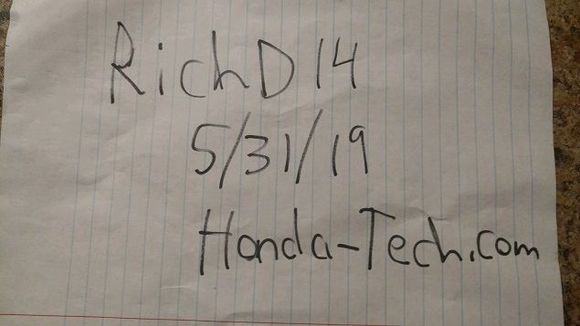 RichD14
5/31/19
Honda-Tech.com